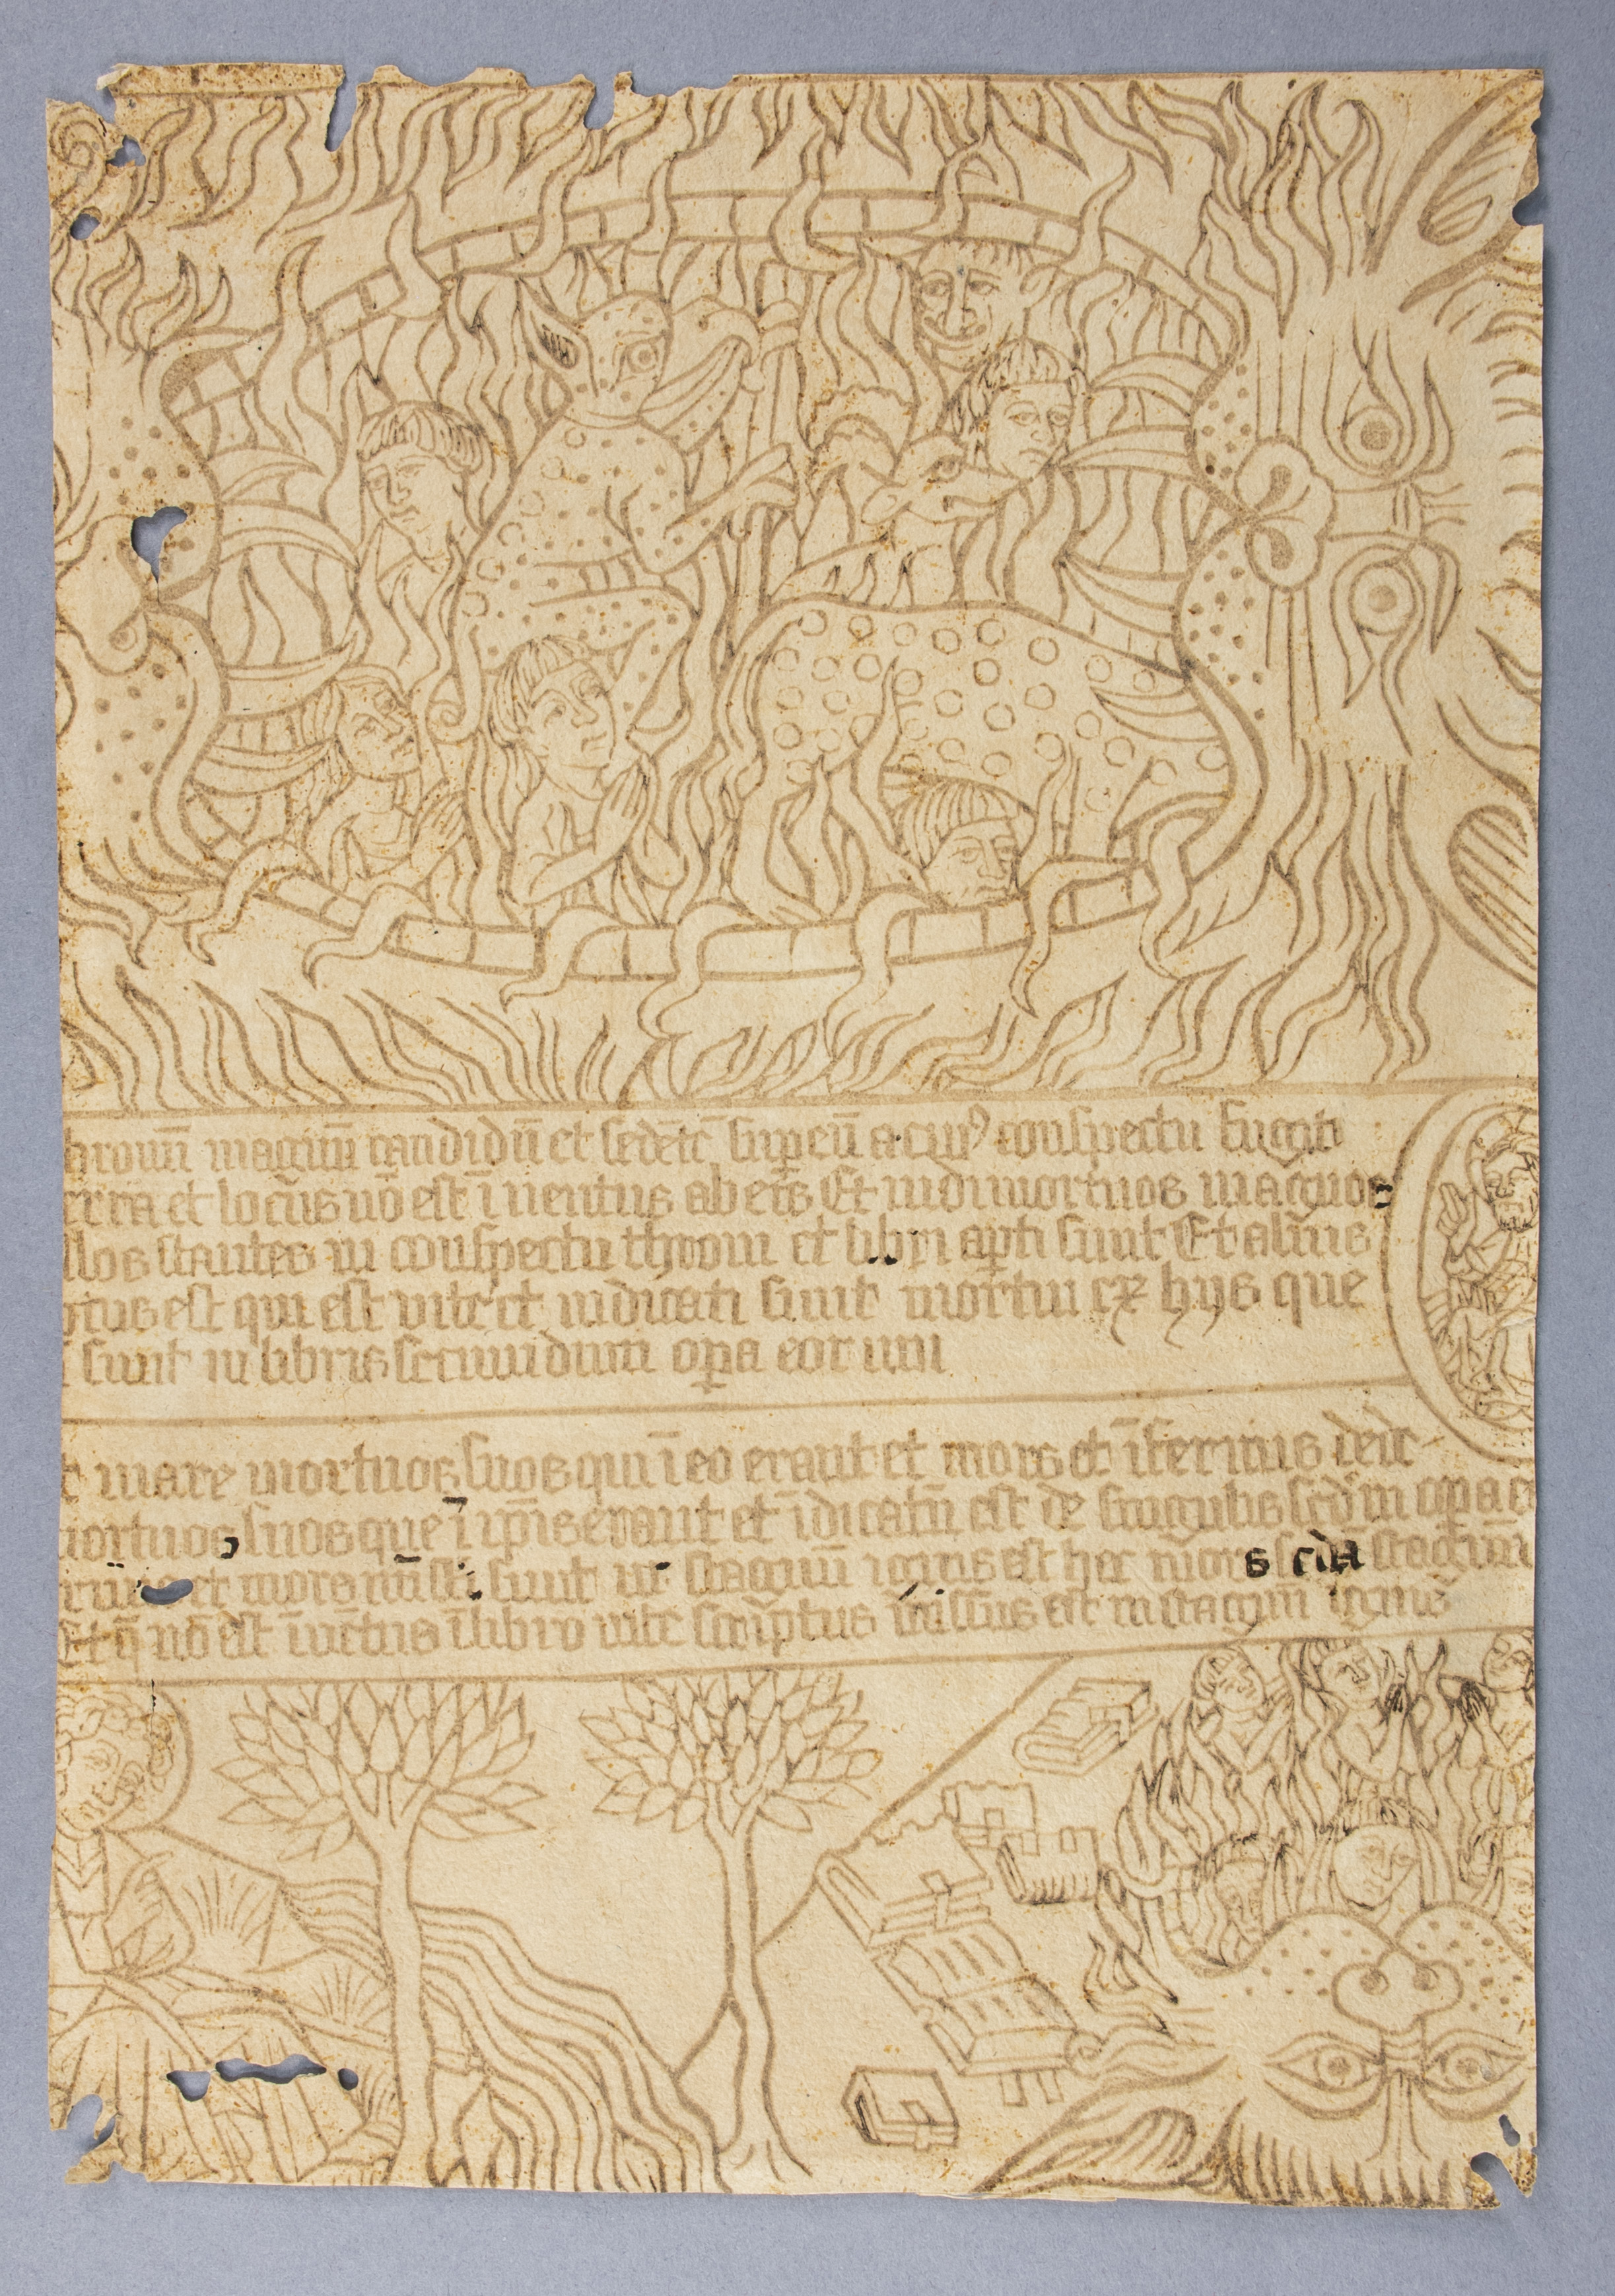 hronū magnū candidū et sedētē sup̲ eū a cui⁹ conspectu fugit
erra et locus nō est īnentus ab eis Et uidi mortuos magnos
llos stantes in conspectu throni et libri ap̲ti sunt Et alius
rtus est qui est vite et iudicati sunt mortui ex hijs que
sunt in libris secundum op̲a eorum
t mare mortuos suos qui ī eo erant et mors et īfernus dedē
mortuos suos que ī ip̄is erant et iudicatū est de singulis scdm op̲a
et mors missi sunt in stagnū ignis est hec mors scda stagnū
Et q̄ nō est īuētus ī libro vite scriptus missus est in stagnū ignis